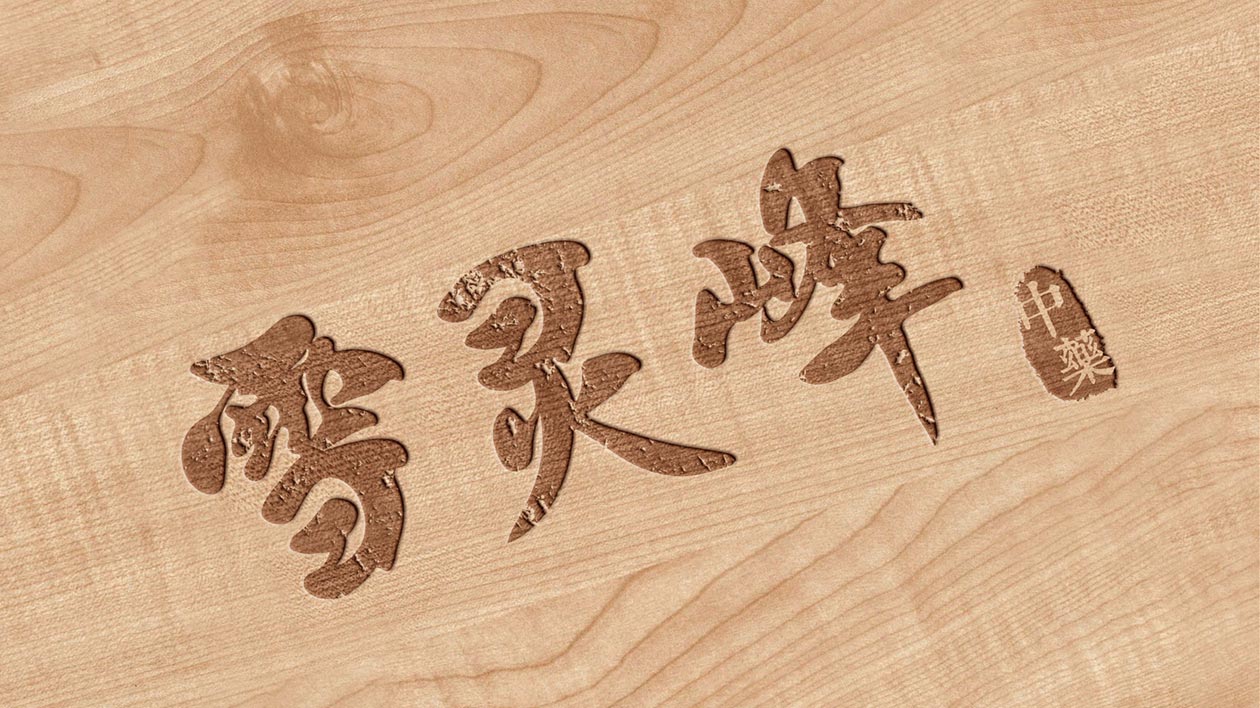 雪灵峰
中藥